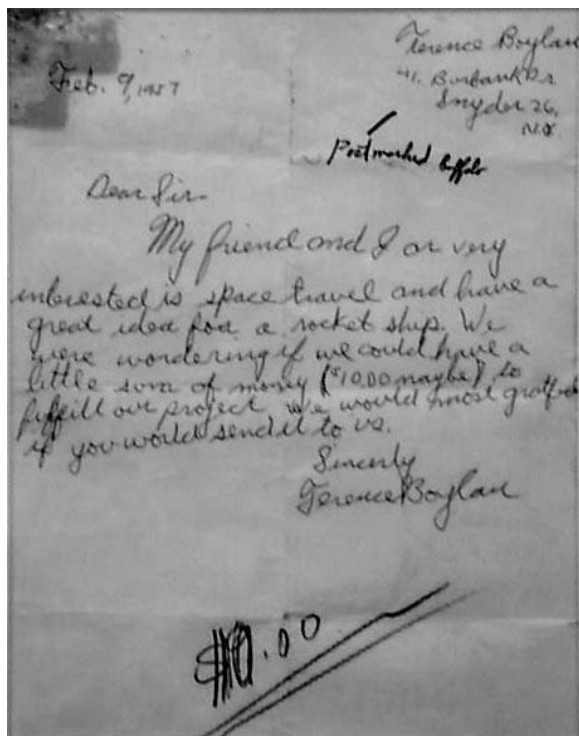 Terence Boylan
41. Burbank Dr
Snyder 26,
N.Y.
Feb. 9, 1957
Postmarked Buffalo
Dear Sir-
My friend and I ar very
interested is space travel and have a
great idea for a rocket ship. We
were wondering if we could have a
little sum of money ($10.00 maybe) to
fulfill our project. We would most
if you would send it to us.
Sincerly
Terence Boylan
.00